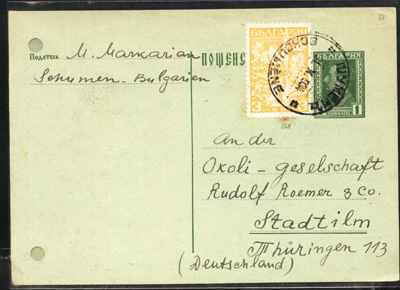 Податель
M. Markarian
Schumen-Bulgarien
ПОЩЕНС
БЪЛГАРИЯ
3
БЪЛГАРИЯ
1
An der
Okoli-gesellschaft
Rudolf Roemer & Co.
Stadtilm
Thüringen 113
(Deutschland)